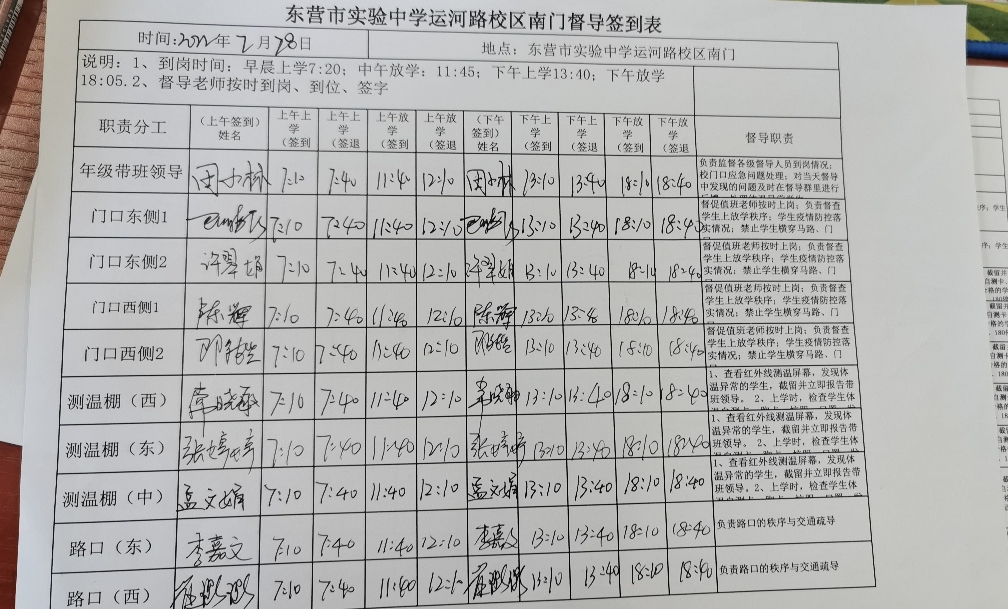 东营市实验中学运河路校区南门督导签到表
时间:2022年2月28日 地点：东营市实验中学运河路校区南门
说明：1、到岗时间：早晨上学7:20；中午放学：11:45；下午上学13:40；下午放学
18:05.2、督导老师按时到岗、到位、签字
职责分工 （上午签到）姓名 上午上学（签到 上午上学（签退 上午放学（签到 上午放学（签退 （下午签到）姓名 下午上学（签到 下午上学（签退 下午放学（签到 下午放学（签退 督导职责
年级带班领导 田小林 7:10 7:40 11:40 12:10 田小林 13:10 13:40 18:10 18:40
负责监督各级督导人员到岗情况；
校门口应急问题处理；对当天督导
中发现的问题及时在督导群里进行
门口东侧1 7:10 7:40 11:40 12:10 13:10 13:40 18:10 18:40
督促值班老师按时上岗；负责督查
学生上放学秩序；学生疫情防控落
实情况；禁止学生横穿马路、门
门口东侧2 许翠娟 7:10 7:40 11:40 12:10 许翠娟 13:10 13:40 18:10 18:40
督促值班老师按时上岗；负责督查
学生上放学秩序；学生疫情防控落
实情况；禁止学生横穿马路、门
门口西侧1 陈辉 7:10 7:40 11:40 12:10 陈辉 13:10 13:40 18:10 18:40
督促值班老师按时上岗；负责督查
学生上放学秩序；学生疫情防控落
实情况；禁止学生横穿马路、门
门口西侧2 7:10 7:40 11:40 12:10 13:10 13:40 18:10 18:40
督促值班老师按时上岗；负责督查
学生上放学秩序；学生疫情防控落
实情况；禁止学生横穿马路、门
测温棚（西） 7:10 7:40 11:40 12:10 13:10 13:40 18:10 18:40
1、查看红外线测温屏幕，发现体
温异常的学生，截留并立即报告带
班领导。2、上学时，检查学生体
测温棚（东） 张婷婷 7:10 7:40 11:40 12:10 张婷婷 13:10 13:40 18:10 18:40
1、查看红外线测温屏幕，发现体
温异常的学生，截留并立即报告带
班领导。2、上学时，检查学生体
测温棚（中） 孟文娟 7:10 7:40 11:40 12:10 孟文娟 13:10 13:40 18:10 18:40
1、查看红外线测温屏幕，发现体
温异常的学生，截留并立即报告带
班领导。2、上学时，检查学生体
路口（东） 李嘉文 7:10 7:40 11:40 12:10 李嘉文 13:10 13:40 18:10 18:40 负责路口的秩序与交通疏导
路口（西） 7:10 7:40 11:40 12:1 13:10 13:40 18:10 18:40 负责路口的秩序与交通疏导